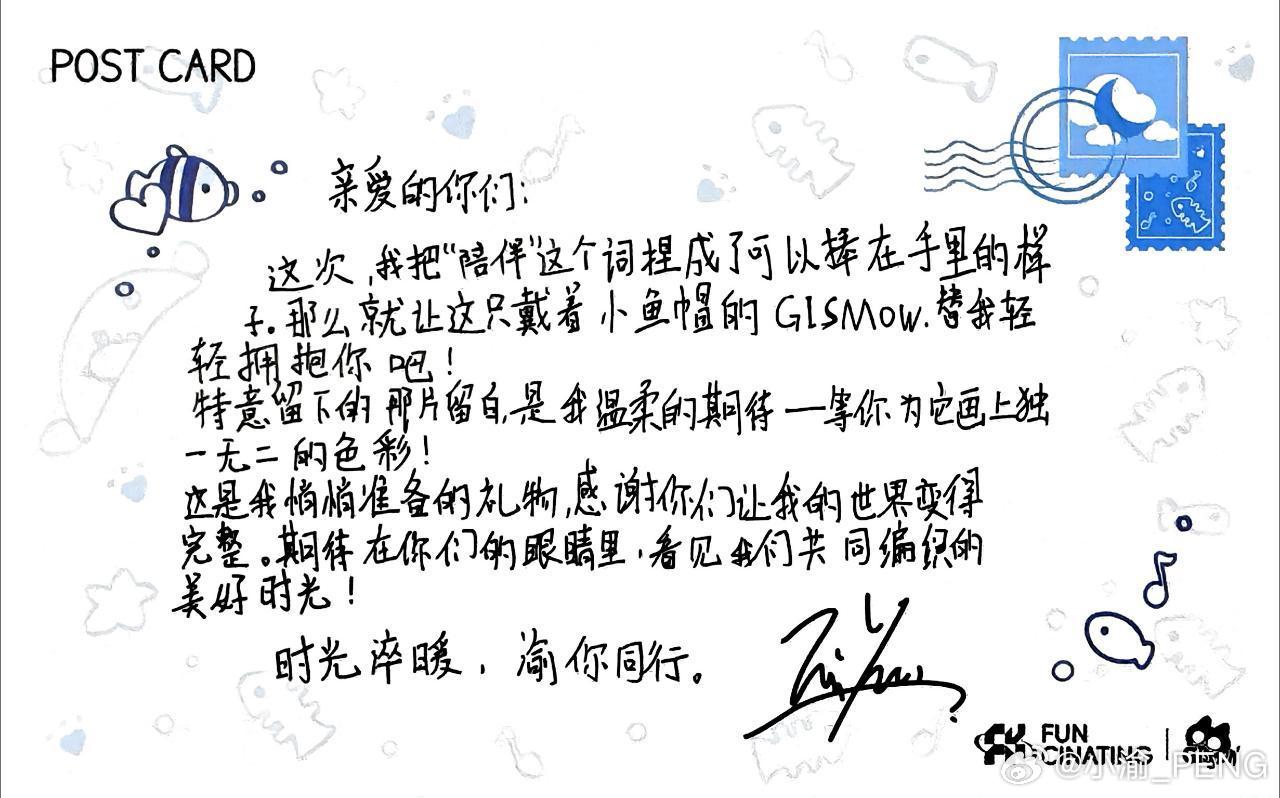 POST CARD
亲爱的你们:
这次,我把“陪伴”这个词捏成了可以捧在手里的样
子。那么就让这只戴着小鱼帽的GISMOW.替我轻
轻拥抱你吧!
特意留下的那片留白,是我温柔的期待—等你为它画上独
一无二的色彩!
这是我悄悄准备的礼物,感谢你们让我的世界变得
完整。期待在你们的眼睛里,看见我们共同编织的
美好时光!
时光淬暖,渝你同行。
FUN
CINATING
@小渝_PENG